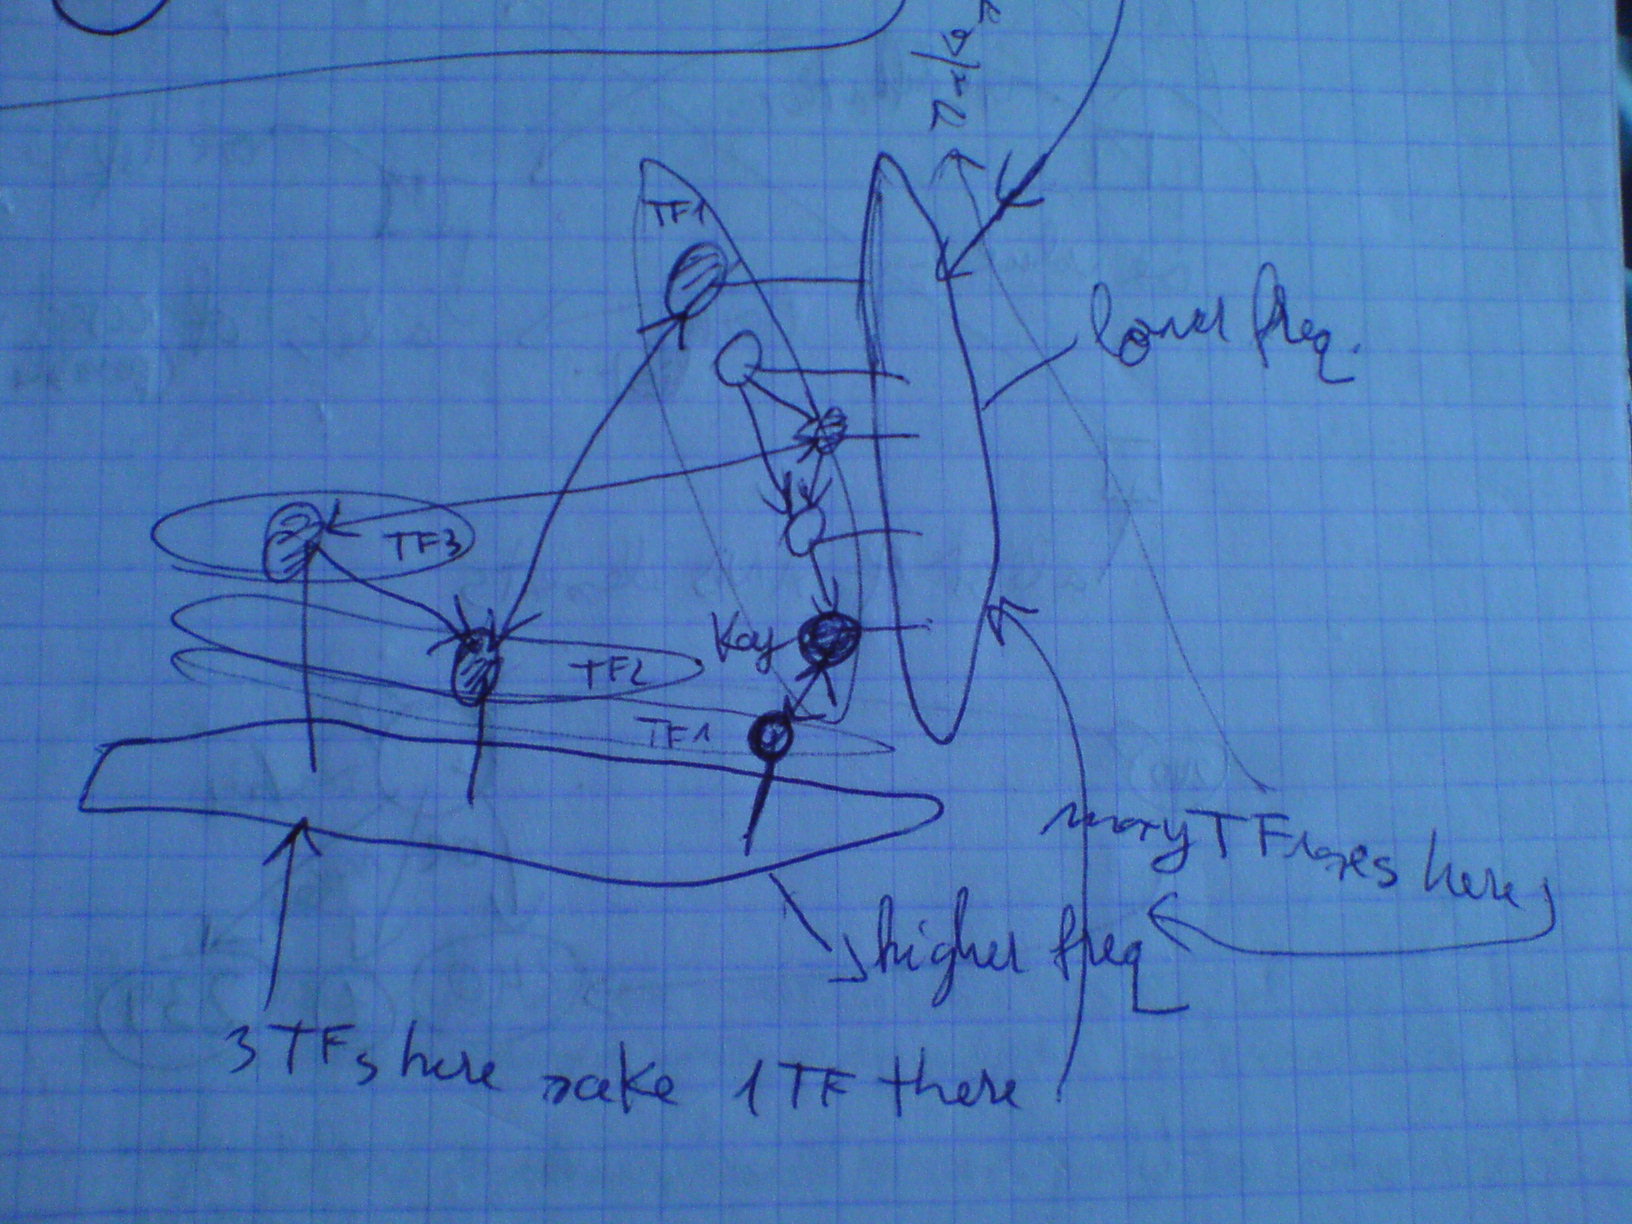 TF1
lower freq.
TF3
Key
TF2
TF1
many TF1axes here
higher freq
3 TFs here make 1 TF there